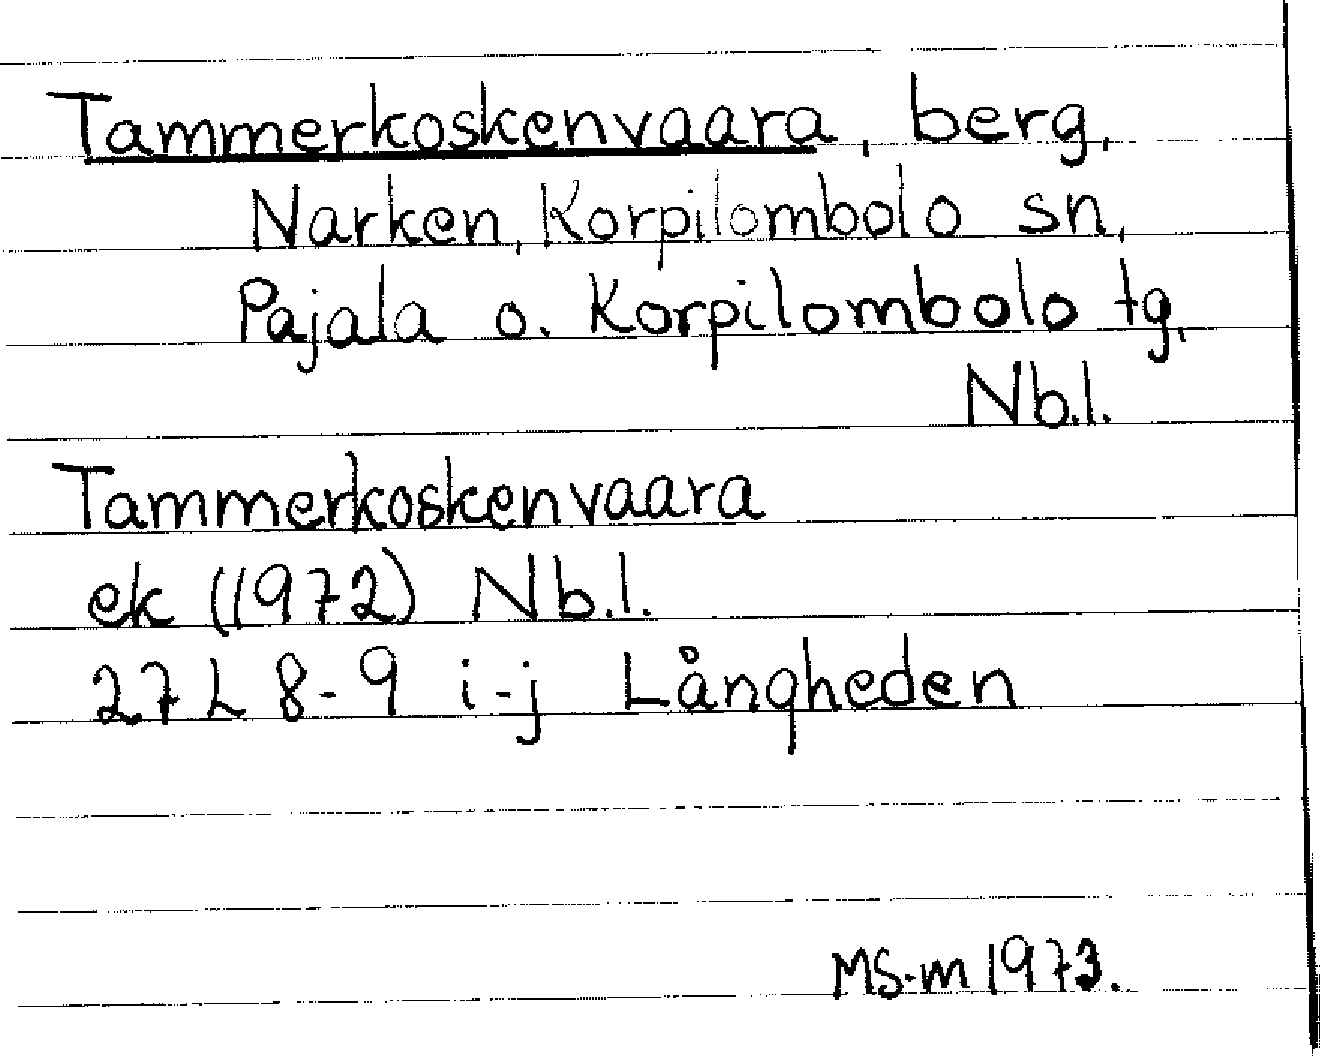 Tammerkoskenvaara, berg,
Narken, Korpilombolo sn,
Pajala o. Korpilombolo tg,
Nb.l.
Tammerkoskenvaara
ek (1972) Nb.l.
27 L 8-9 i-j Långheden
MS-m 1973.